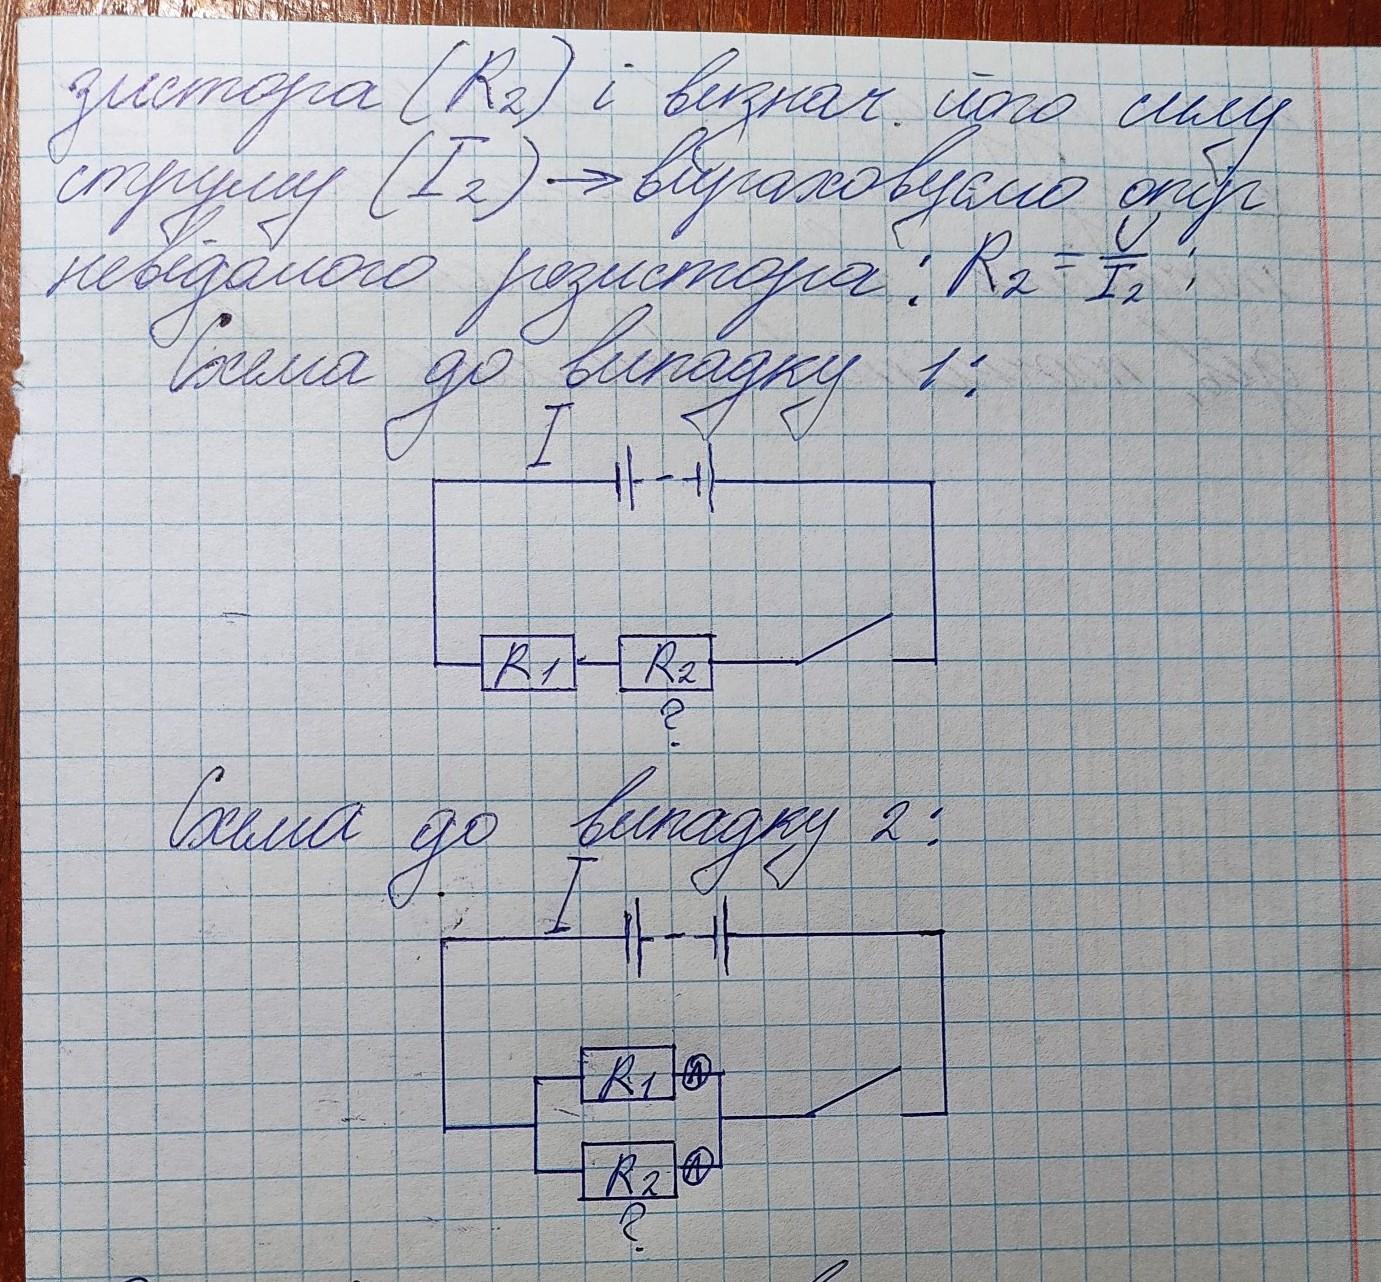 зистора (R2) і визнач. його силу
струму (I2) → вираховуємо опір
невідомого резистора: R2 = U/I2;
Схема до випадку 1:
I
R1 R2
?
Схема до випадку 2:
I
R1 A
R2 A
?